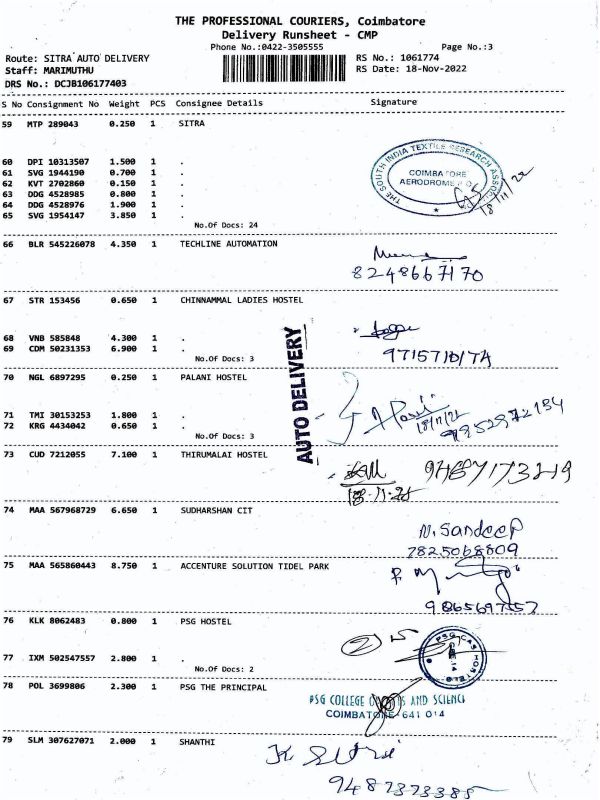 THE PROFESSIONAL COURIERS, Coimbatore
Delivery Runsheet - CMP
Phone No.:0422-3505555 Page No.:3
Route: SITRA AUTO DELIVERY RS No.: 1061774
Staff: MARIMUTHU RS Date: 18-Nov-2022
DRS No.: DCJB106177403
S No Consignment No Weight PCS Consignee Details Signature
59 MTP 289043 0.250 1 SITRA
THE SOUTH INDIA TEXTILE RESEARCH
COIMBATORE
AERODROME P O
18/11/22
60 DPI 10313507 1.500 1 .
61 SVG 1944190 0.700 1 .
62 KVT 2702860 0.150 1 .
63 DDG 4528985 0.800 1 .
64 DDG 4528976 1.900 1 .
65 SVG 1954147 3.850 1 .
No.Of Docs: 24
66 BLR 545226078 4.350 1 TECHLINE AUTOMATION
8248667170
67 STR 153456 0.650 1 CHINNAMMAL LADIES HOSTEL
68 VNB 585848 4.300 1 .
69 CDM 50231353 6.900 1 .
No.Of Docs: 3
AUTO DELIVERY
70 NGL 6897295 0.250 1 PALANI HOSTEL
71 TMI 30153253 1.800 1 .
72 KRG 4434042 0.650 1 .
No.Of Docs: 3
73 CUD 7212055 7.100 1 THIRUMALAI HOSTEL
74 MAA 567968729 6.650 1 SUDHARSHAN CIT
N. Sandeep
7825068809
75 MAA 565860443 8.750 1 ACCENTURE SOLUTION TIDEL PARK
9865697557
76 KLK 8062483 0.800 1 PSG HOSTEL
PSG CAS HOSTELS
77 IXM 502547557 2.800 1 .
No.Of Docs: 2
78 POL 3699806 2.300 1 PSG THE PRINCIPAL
PSG COLLEGE OF ARTS AND SCIENCE
COIMBATORE - 641 014
79 SLM 307627071 2.000 1 SHANTHI
9487373385